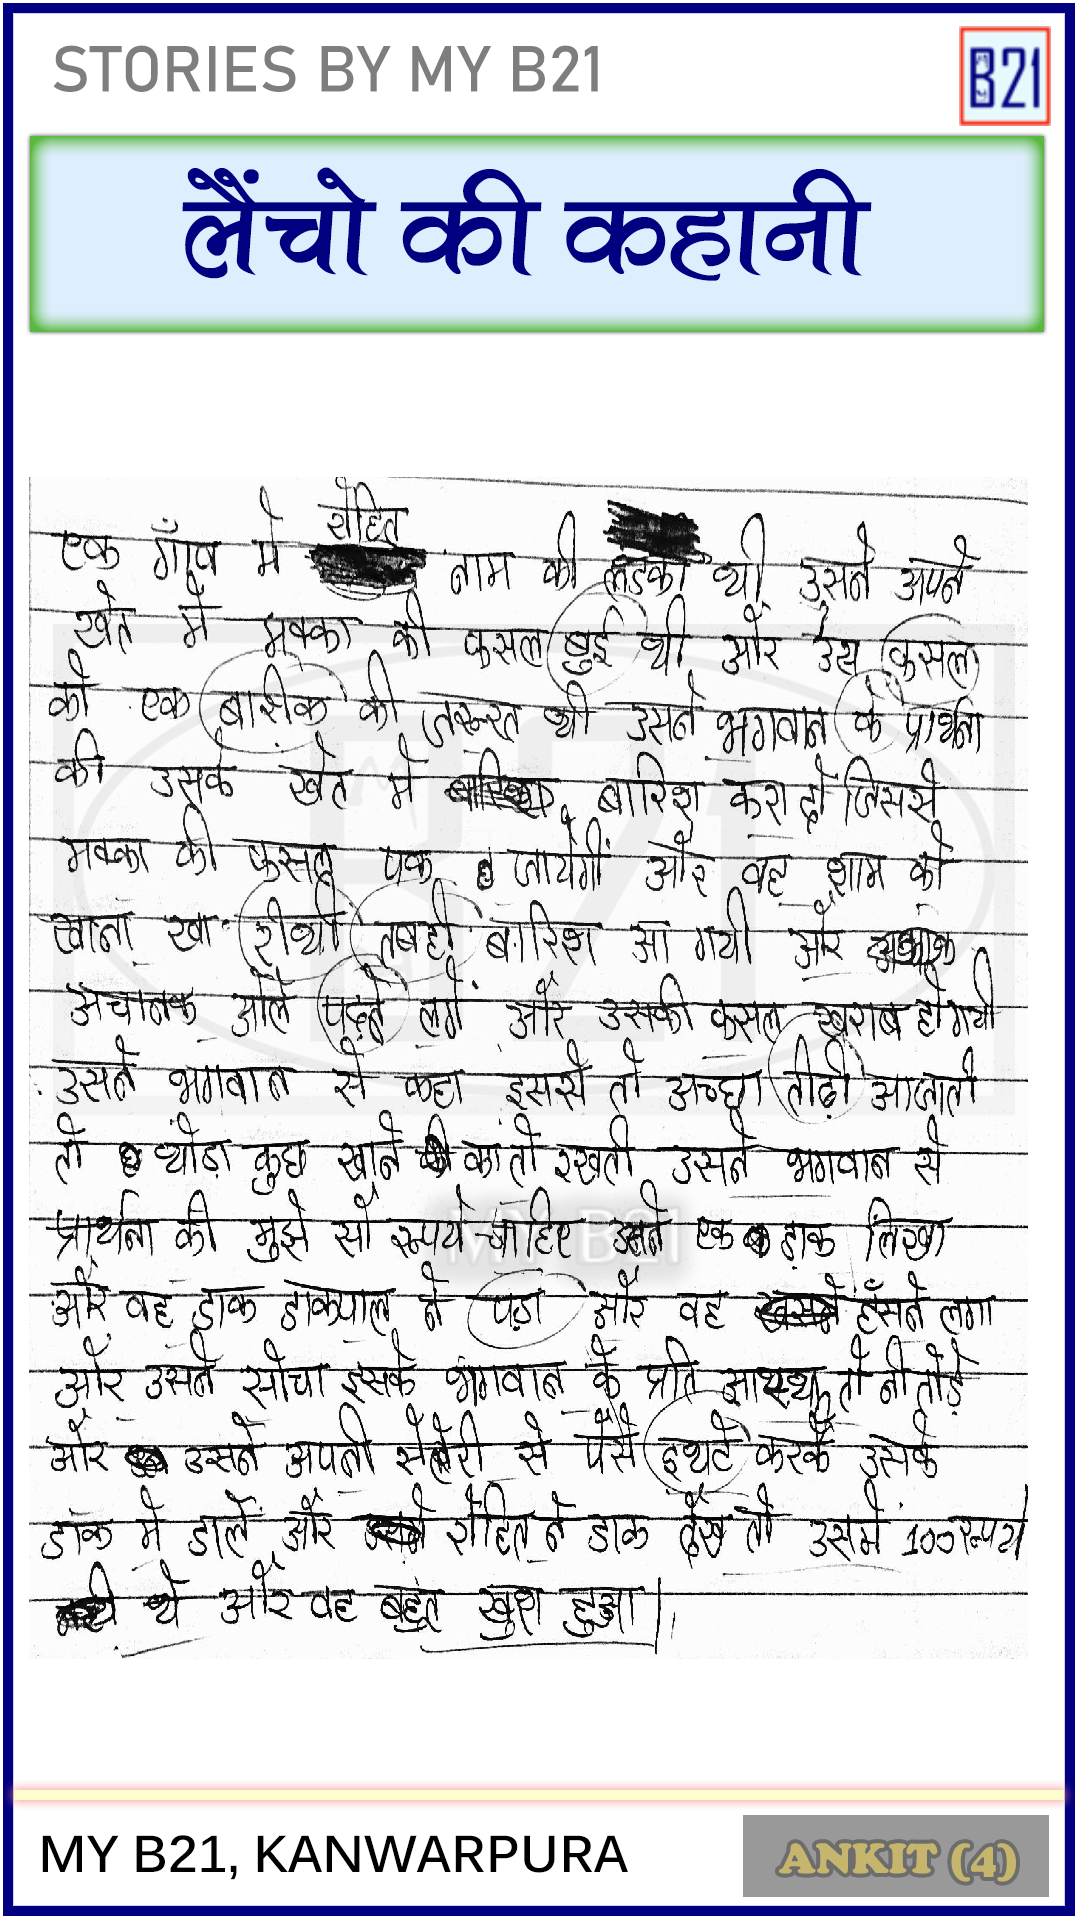 STORIES BY MY B21
B21
लैंचो की कहानी
रोहित
एक गाँव मे नाम की लडका थी उसने अपने
खेत मे मक्का की फसल बुई थी और उस फसल
को एक बारीक की जरूरत थी उसने भगवान के प्रार्थना
की उसके खेत मे बारिश करा दो जिससे
मक्का की फसल पक जायेगी और वह शाम को
खाना खा रीथी तबही बारिश आ गयी और
अचानक ओले पढ़ने लगे और उसकी फसल खराब हो गयी
उसने भगवान से कहा इससे तो अच्छा तीढ़ी आजाती
तो थोडा कुछ खाने का तो रखती उसने भगवान से
प्रार्थना की मुझे सो रूपये चाहिए उसने एक डाक लिखा
और वह डाक डाकपाल ने पड़ा और वह हँसने लगा
और उसने सोचा इसके भगवान के प्रति आस्था तो नी तोड़े
और उसने अपनी सेलेरी से पैसे इथटे करके उसके
डाक मे डाले और रोहित ने डाक देख तो उसमे 100 रूपये
थे और वह बहुत खुश हुआ।
MY B21
MY B21, KANWARPURA
ANKIT (4)